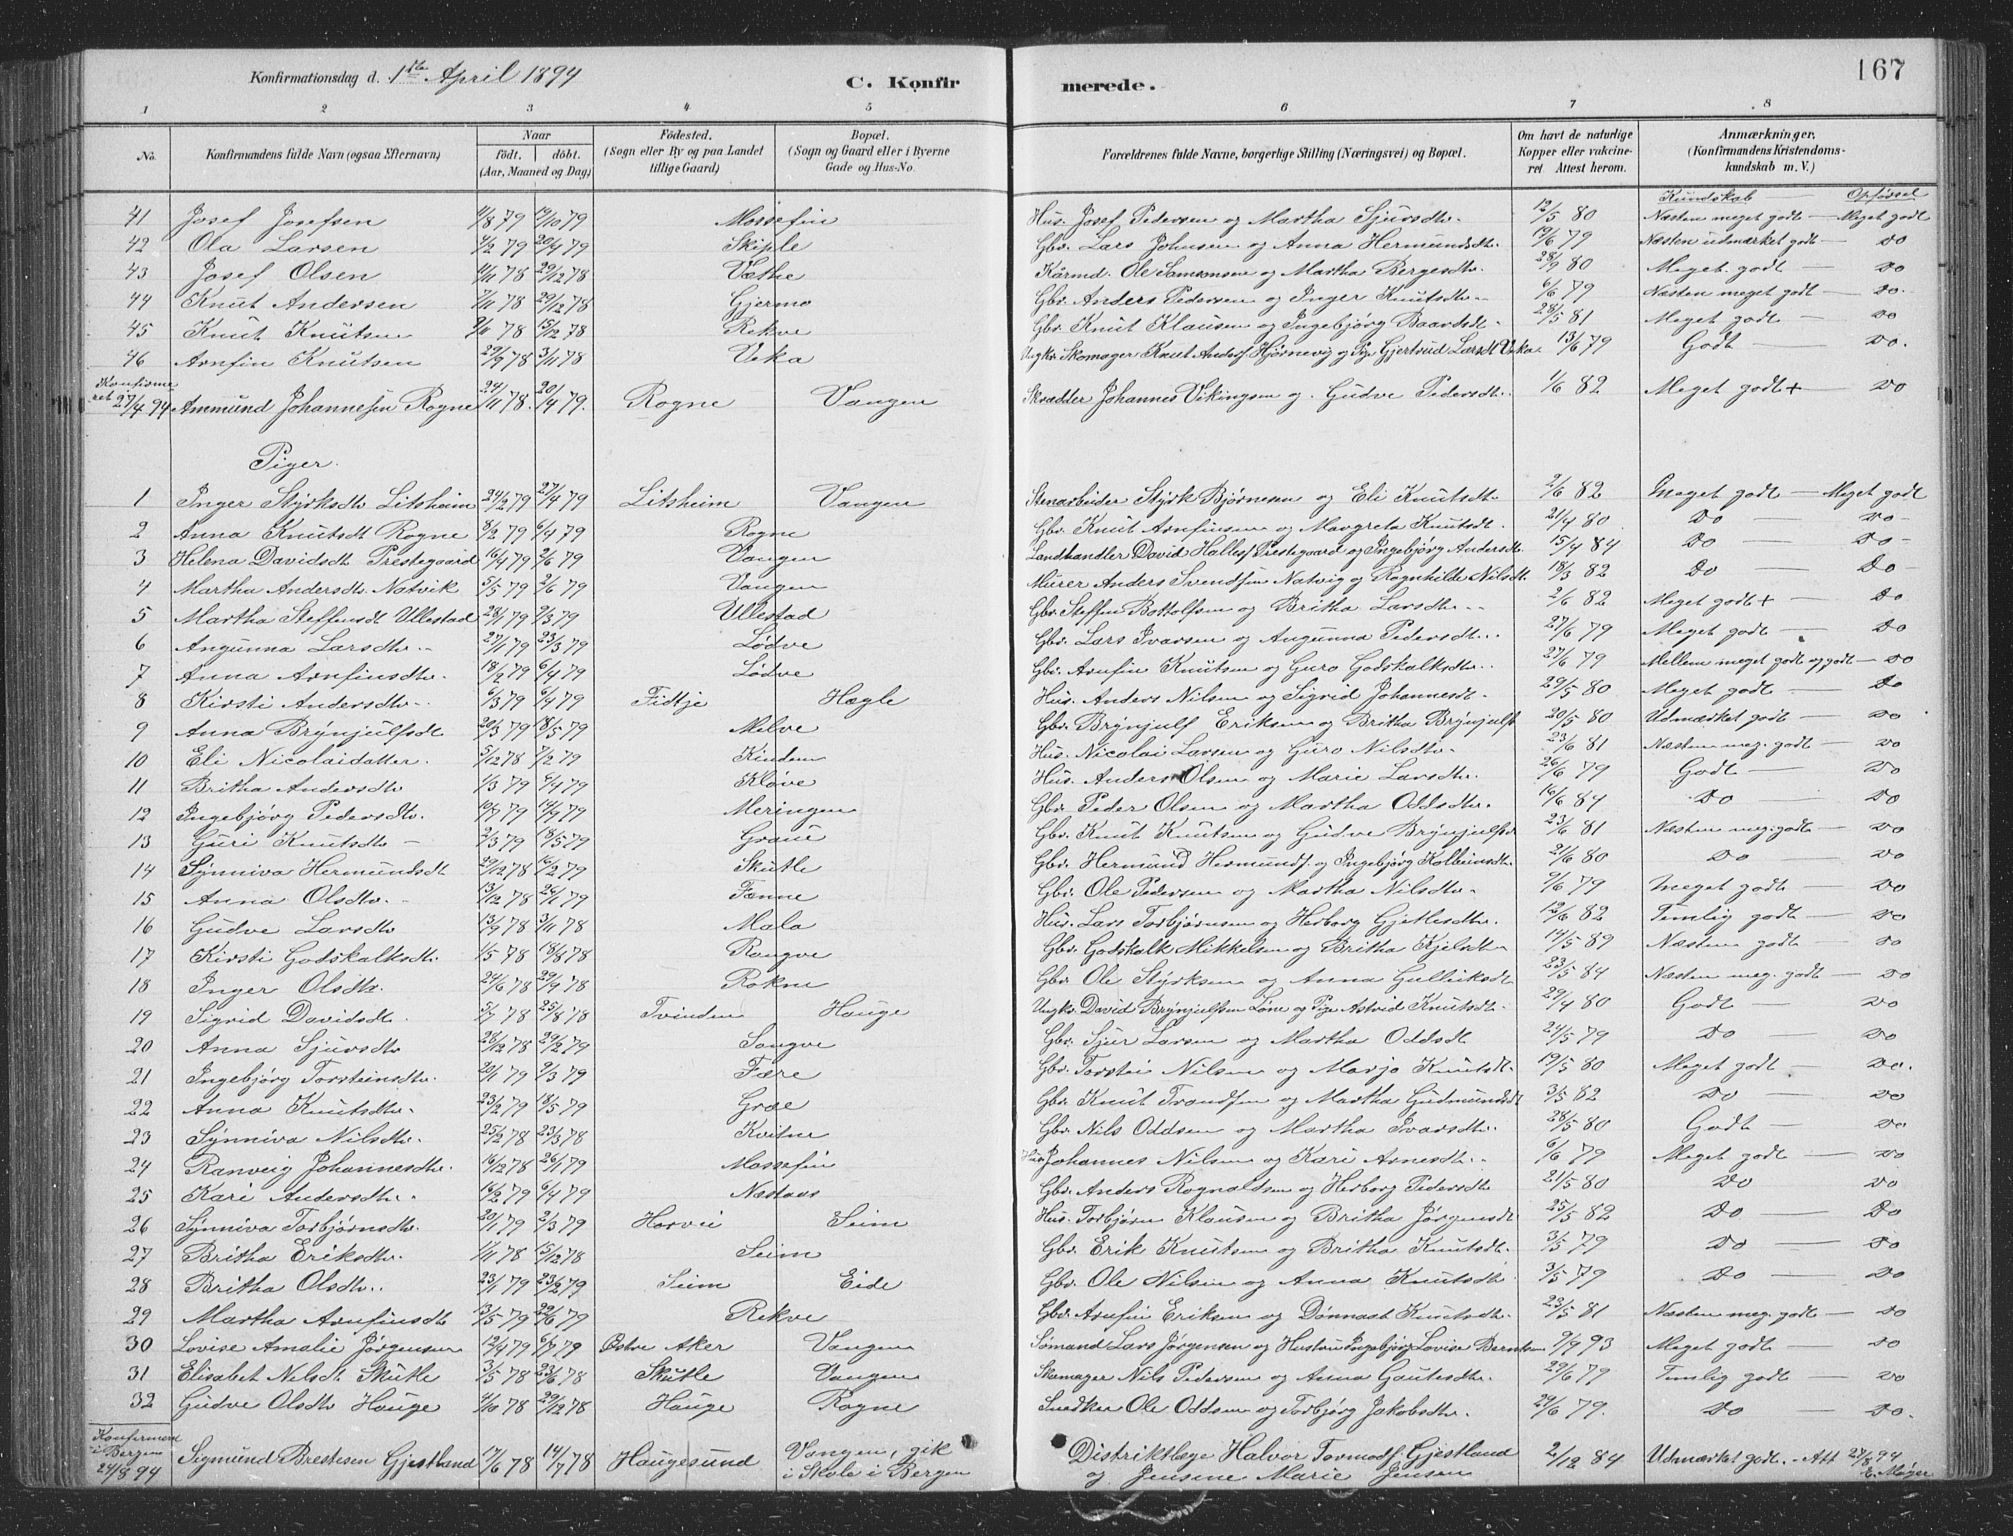 Konfirmationsdag d. 1ste April 1894 C. Konfirmerede. 167
1 2 3 4 5 6 7 8
No. Konfirmandens fulde Navn (ogsaa Efternavn) Naar født. døbt. (Aar, Maaned og Dag) Fødested. (Sogn eller By og paa Landet tillige Gaard) Bopæl. (Sogn og Gaard eller i Byerne Gade og Hus-No. Forældrenes fulde Navne, borgerlige Stilling (Næringsvei) og Bopæl. Om havt de naturlige Kopper eller vaccineret Attest herom. Anmærkninger, (Konfirmandens Kristendomskundskab m. V.)
Kundskab — Opførsel
41 Josef Josefsen 11/8 79 19/10 79 Mossefin Hus. Josef Pedersen og Martha Sjursdtr. 12/5 80 Næsten meget godt — Meget godt
42 Ola Larsen 4/2 79 20/4 79 Skiple Gbr. Lars Johnsen og Anna Hermundsdtr. 19/6 79 Næsten udmærket godt — Do
43 Josef Olsen 11/11 78 29/12 78 Væthe Kårmd. Ole Samsonsen og Martha Bergesdtr. 28/9 80 Meget godt — Do
44 Knut Andersen 7/11 78 29/12 78 Gjermo Gbr. Anders Pedersen og Inger Knutsdtr. 6/6 79 Næsten meget godt — Do.
45 Knut Knutsen 9/11 78 15/12 78 Rekve Gbr. Knut Klausen og Ingebjørg Baardsdt. 28/5 81 Meget godt — Do
46 Arnfin Knutsen 29/9 78 3/11 78 Veka Ungkr. Skomager Knut Andersf Hjørnevig og Pige Gjertrud Larsdt Veka 13/6 79 Godt — Do.
Konfirmeret 27/4 94 Ammund Johannesen Rogne 24/11 78. 20/4 79. Rogne Vangen Skrædder Johannes Vikingsen og Gudve Pedersdtr. 1/6 82 Meget godt+ Do
Piger.
1 Inger Styrksdtr Litsheim 24/2 79 27/4 79 Litsheim Vangen Stenarbeider Styrk Bjørnesen og Eli Knutsdtr 2/6 82 Meget godt — Meget godt
2 Anna Knutsdt Rogne 8/2 79 6/4 79 Rogne Gbr. Knut Arnfinsen og Margreta Knutsdt. 21/4 80 Do — Do
3 Helena Davidsdt Prestegaard 16/4 79 2/6 79 Vangen Landhandler David Hallesf Prestegaard og Ingebjørg Andersdt. 15/4 84 Do — Do
4 Martha Andersdtr Natvik 5/5 79 2/6 79 Vangen Murer Anders Svendsen Natvig og Ragnhilde Nilsdt. 18/3 82 Do — Do
5 Martha Steffensdt Ullestad 28/1 79 9/3 79 Ullestad Gbr. Steffen Bottolfsen og Britha Larsdtr. 2/6 82 Meget godt+ — Do
6 Angunna Larsdtr. 27/1 79 23/3 79 Lødve Gbr. Lars Ivarsen og Angunna Pedersdtr. 27/6 79 Meget godt — Do
7 Anna Arnfinsdtr. 18/2 79 6/4 79 Lødve Gbr. Arnfin Knutsen og Guro Godskalksdtr. 27/6 79 Mellem meget godt og godt — Do
8 Kirsti Andersdtr. 6/3 79 6/4 79 Fidtje Hægle Hus. Anders Nilsen og Sigrid Johannesdt. 29/5 80 Meget godt — Do
9 Anna Brynjulfsdt 20/3 79 18/5 79 Melve Gbr. Brynjulf Eriksen og Britha Brynjulfsd 20/5 80 Udmærket godt — Do
10 Eli Nicolaidatter. 5/12 78 7/2 79 Kinden Hus. Nicolai Larsen og Guro Nilsdtr. 23/6 81 Næsten meg. godt — Do
11 Britha Andersdtr 1/3 79 6/4 79 Kløve Hus. Anders Olsen og Marie Larsdtr. 26/6 79 Godt — Do
12 Ingebjørg Pedersdtr. Meringen Gbr. Peder Olsen og Martha Oddsdtr. 16/6 84 Do — Do
13 Guri Knutsdtr 2/3 79 18/5 79 Graue Gbr. Knut Knutsen og Gudve Brynjulfsd 23/6 81 Næsten meg. godt — Do
14 Synniva Hermundsdt 29/12 78 16/2 79 Skutle Gbr. Hermund Hermundsf. og Ingebjørg Kolbeinsdt. 21/6 80 Do — Do
15 Anna Olsdtr. 13/12 78 26/1 79 Fænne Gbr. Ole Pedersen og Martha Nilsdtr. 9/6 79 Meget godt — Do
16 Gudve Larsdtr 13/9 78 3/11 78 Mala Hus. Lars Torbjørnsen og Herborg Gjetlesdtr. 12/6 82 Temlig godt — Do
17 Kirsti Godskalksdt. 1/5 78 18/8 78 Rongve Gbr. Godskalk Mikkelsen og Britha Kjelsdtr 14/5 89 Næsten godt — Do
18 Inger Olsdtr. 24/6 78 29/9 78 Rokne Gbr. Ole Styrksen og Anna Gulleiksdt. 23/5 84 Næsten meg. godt — Do
19 Sigrid Davidsdt. 5/7 78 25/8 78 Tvinden Hauge Ungkr. David Brynjulfsen Løne og Pige Astrid Knutsdt. 29/4 80 Godt — Do
20 Anna Sjursdtr 28/12 78 Songve Gbr. Sjur Larsen og Martha Oddsdt 24/5 79 Do — Do
21 Ingebjørg Torsteinsdtr. 20/1 79 9/3 79 Fære Gbr. Torstei Nilsen og Marjo Knutsdt. 19/5 80 Meget godt — Do.
22 Anna Knutsdtr. 23/2 79 18/5 79 Græe Gbr. Knut Trondsen og Martha Gudmundsdt 3/5 82 Do — Do
23 Synniva Nilsdtr. 25/2 78 23/3 78 Kvitne Gbr. Nils Oddsen og Martha Ivarsdtr. 28/5 80 Godt — Do
24 Ranveig Johannesdtr. 16/12 78 26/1 79 Mossefin Hus. Johannes Nilsen og Kari Arnesdtr. 6/6 79 Meget godt — Do
25 Kari Andersdtr. 16/2 79 6/4 79 Næstaas Gbr. Anders Rognaldsen og Herborg Pedersdtr 21/5 80 Do Do
26 Synniva Torbjørnsdtr. 20/1 79 2/3 79 Horvei Seim Hus. Torbjørn Klausen og Britha Jørgensdt 25/5 82 Do — Do
27 Britha Eriksdtr. 1/11 78 15/12 78 Seim Gbr. Erik Knutsen og Britha Knutsdtr. 3/5 79 Do — Do
28 Britha Olsdtr. 23/1 79 23/2 79 Seim Eide Gbr. Ole Nilsen og Anna Knutsdtr. 3/5 79 Do — Do
29 Martha Arnfinsdt 13/5 79 29/6 79 Rekve Gbr. Arnfin Eriksen og Dønnaat Knutsdtr. 23/5 81 Næsten meg. godt — Do
30 Lovise Amalie Jørgensen 12/4 79 6/7 79 Østre Aker Vangen Sømand Lars Jørgensen og Hustru Ingebjørg Lovise Berntsen 9/9 93 Meget godt — Do
31 Elisabet Nilsdt Skutle 3/5 78 23/6 78 Skutle Vangen Skomager Nils Pedersen og Anna Gautesdtr. 29/6 79 Temlig godt — Do
32 Gudve Olsdtr Hauge 4/10 78 29/12 78 Hauge Rogne Snedker Ole Oddsen og Torbjørg Jakobsdtr. 24/6 79. Do — Do.
Konfirmeret i Bergen 24/8 94 Sigmund Brestesen Gjestland 17/6 78 14/7 78 Haugesund Vangen, gik i Skole i Bergen Distriktlæge Halvor Tormodsf. Gjestland og Jensine Marie Jensen 2/12 84 Udmærket godt. - Att 27/8 94 E. Møyer